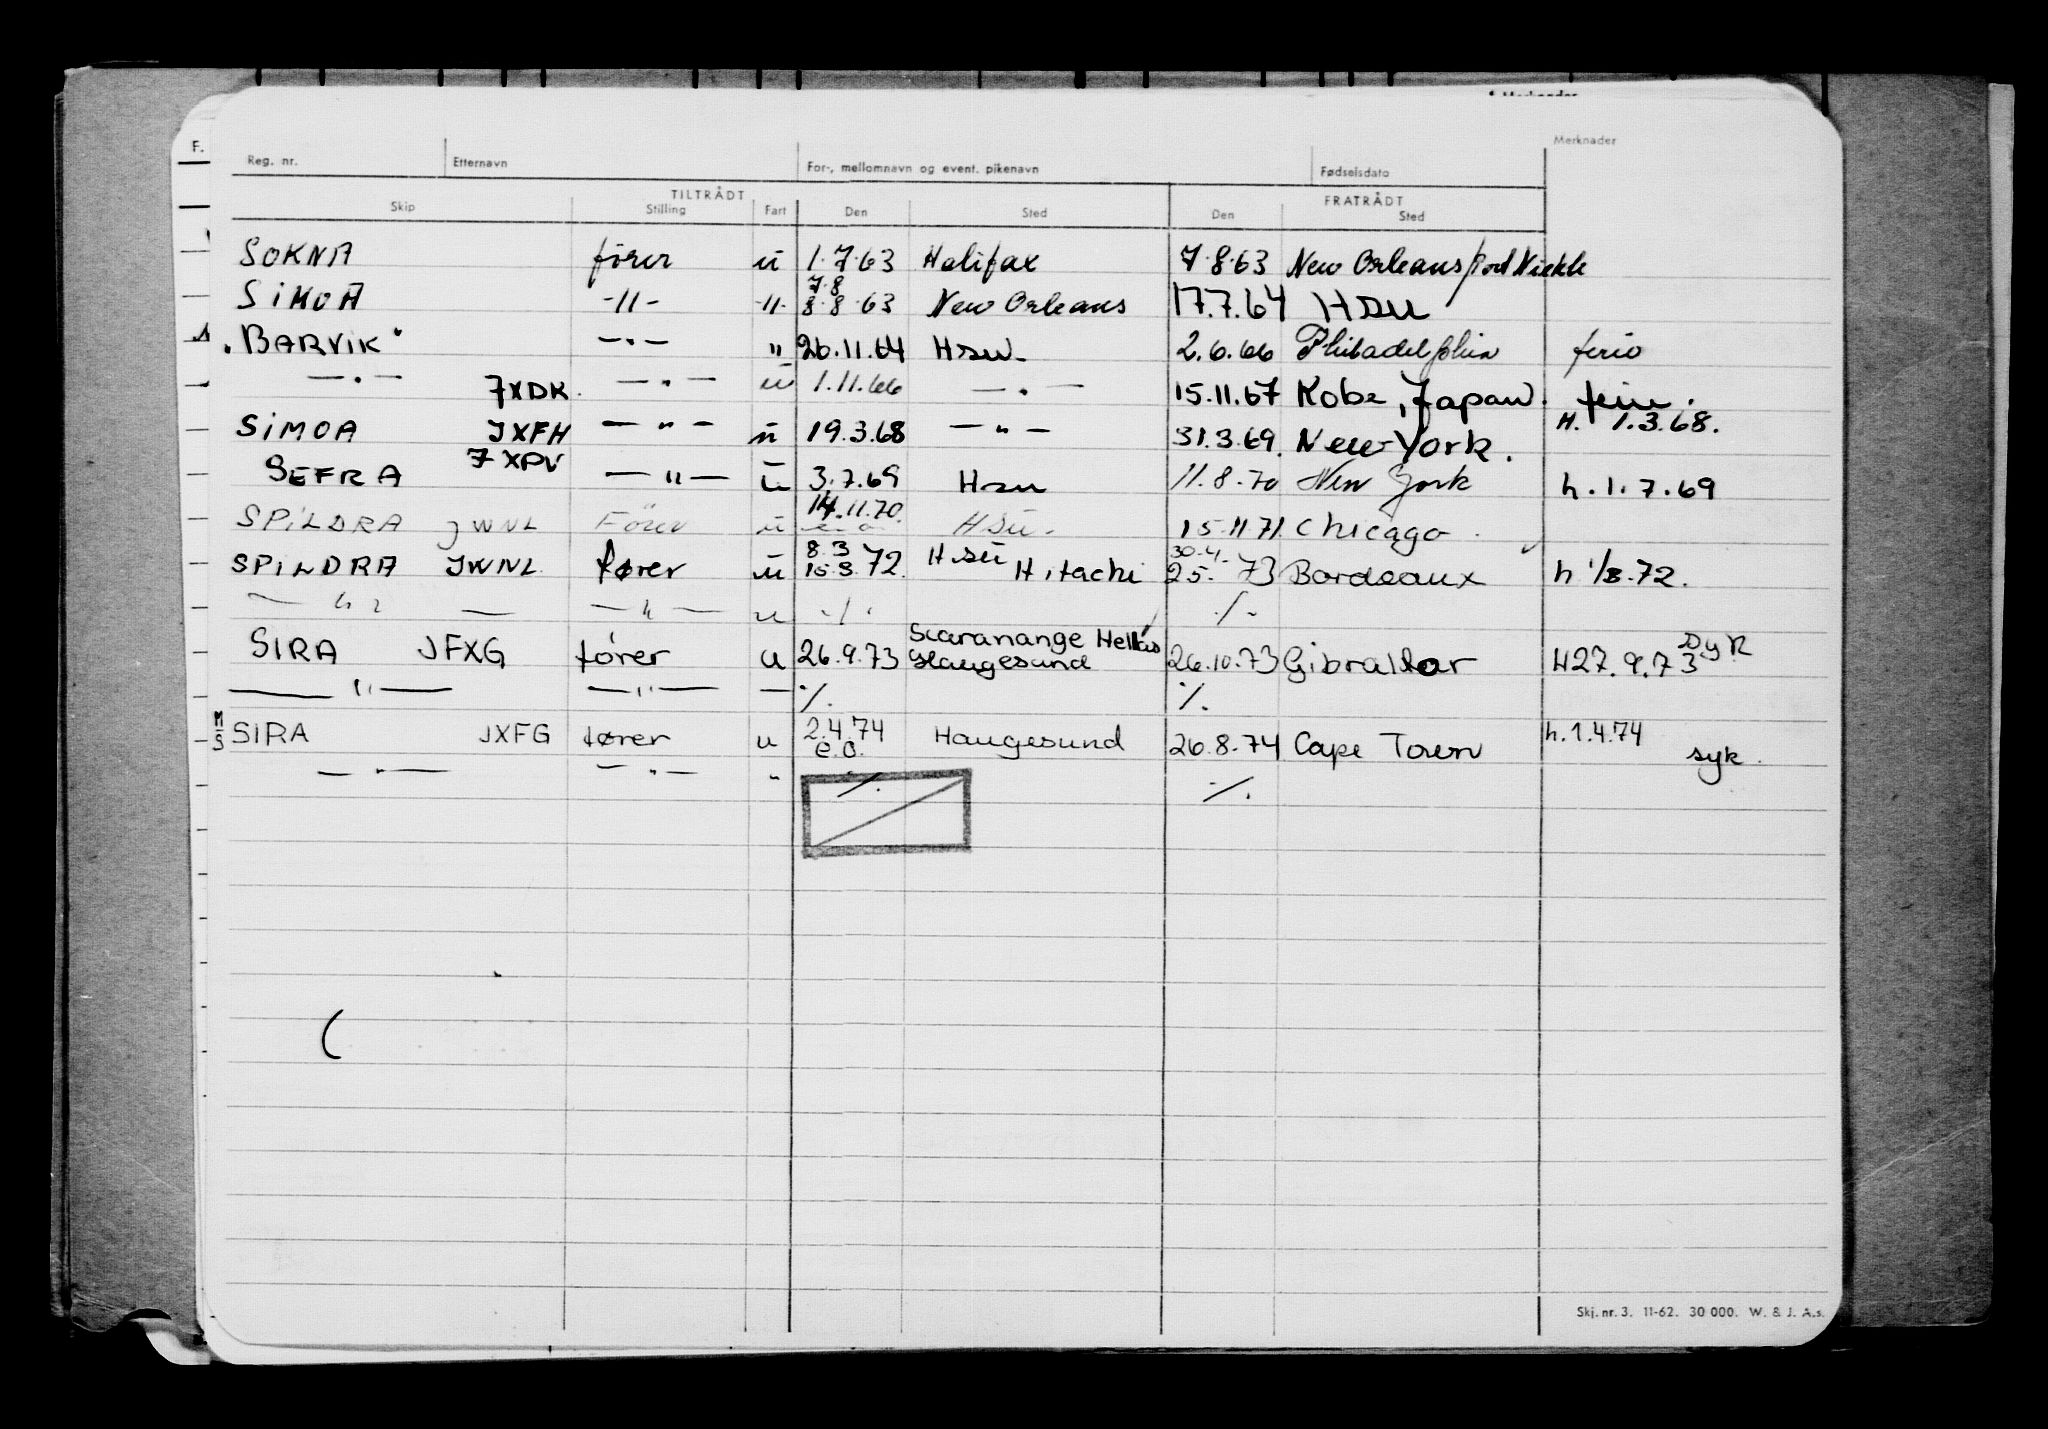 F.
Reg. nr. Etternavn For-, mellomnavn og event. pikenavn Fødselsdato Merknader
TILTRÅDT FRATRÅDT
Skip Stilling Fart Den Sted Den Sted
SOKNA fører u 1.7.63 Halifax 7.8.63 New Orleans/Port
7.8
SIMOA -"- -"- 8.8.63 New Orleans 17.7.64 Hsu
"BARVIK" -"- " 26.11.64 Hsu- 2.6.66 Philadelphia ferie
-"- 7XDK. -"- u 1.11.66 -"- 15.11.67 Kobe, Japan. ferie.
SIMOA JXFH -"- u 19.3.68 -"- 31.3.69. New York. H. 1.3.68.
SEFRA 7XPV -"- u 3.7.69 Hsu 11.8.70 New York h.1.7.69
14.11.70
SPILDRA JWNL Fører u Hsu. 15.11.71 Chicago
8.3 30.4.
SPILDRA JWNL fører u 10.3.72. Hsu Hitachi 25. 73 Bordeaux h 1/3.72.
-"- -"- u ./. ./.
Scaranange Hellas
SIRA JFXG fører u 26.9.73 Haugesund 26.10.73 Gibraltar H27.9.73 syk
-"- -"- - ./. ./.
M/S SIRA JXFG fører u 2.4.74 Haugesund 26.8.74 Cape Town h.1.4.74 syk.
e.o.
-"- -"- " ./. ./.
(
Skj. nr. 3. 11-62. 30 000. W. & J. A.s.